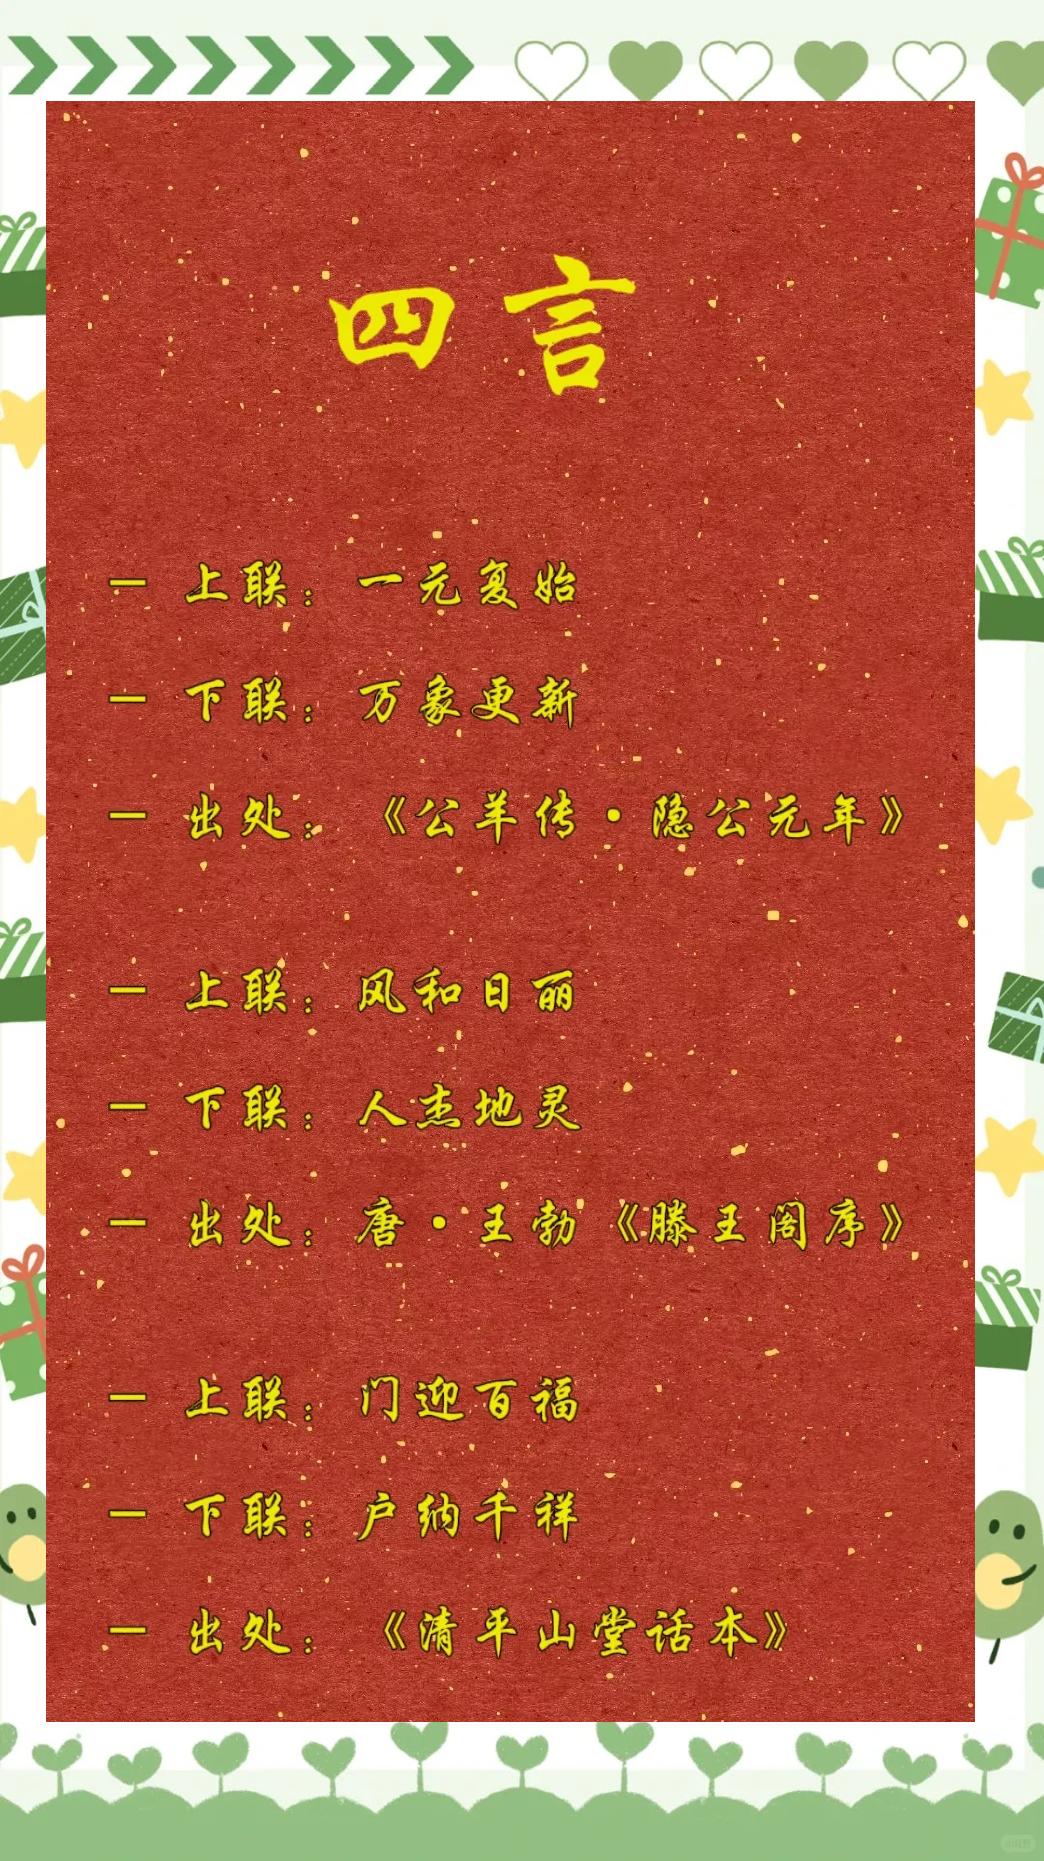 四言
一 上联：一元复始
一 下联：万象更新
一 出处：《公羊传·隐公元年》
一 上联：风和日丽
一 下联：人杰地灵
一 出处：唐·王勃《滕王阁序》
一 上联：门迎百福
一 下联：户纳千祥
一 出处：《清平山堂话本》